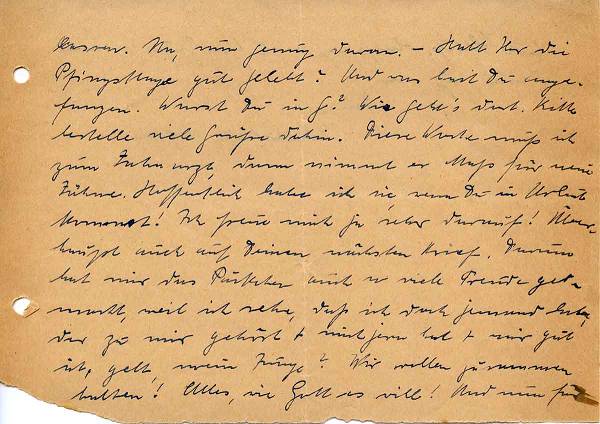 lassen. Na, nun genug davon. – Habt Ihr die
Pfingsttage gut gelebt? Und was hast Du ange-
fangen. Warst Du in G.? Wie geht's dort. Bitte
bestelle viele Grüße dahin. Diese Woche muß ich
zum Zahnarzt, dann nimmt er Maß für neue
Zähne. Hoffentlich habe ich sie, wenn Du in Urlaub
kommst! Ich freue mich ja sehr darauf! Über-
haupt auch auf Deinen nächsten Brief. Darum
hat mir das Päckchen auch so viele Freude ge-
macht, weil ich sehe, daß ich doch jemand habe,
der zu mir gehört + mich gern hat + mir gut
ist, gelt, mein Junge? Wir wollen zusammen
halten! Alles, wie Gott es will! Und nun für